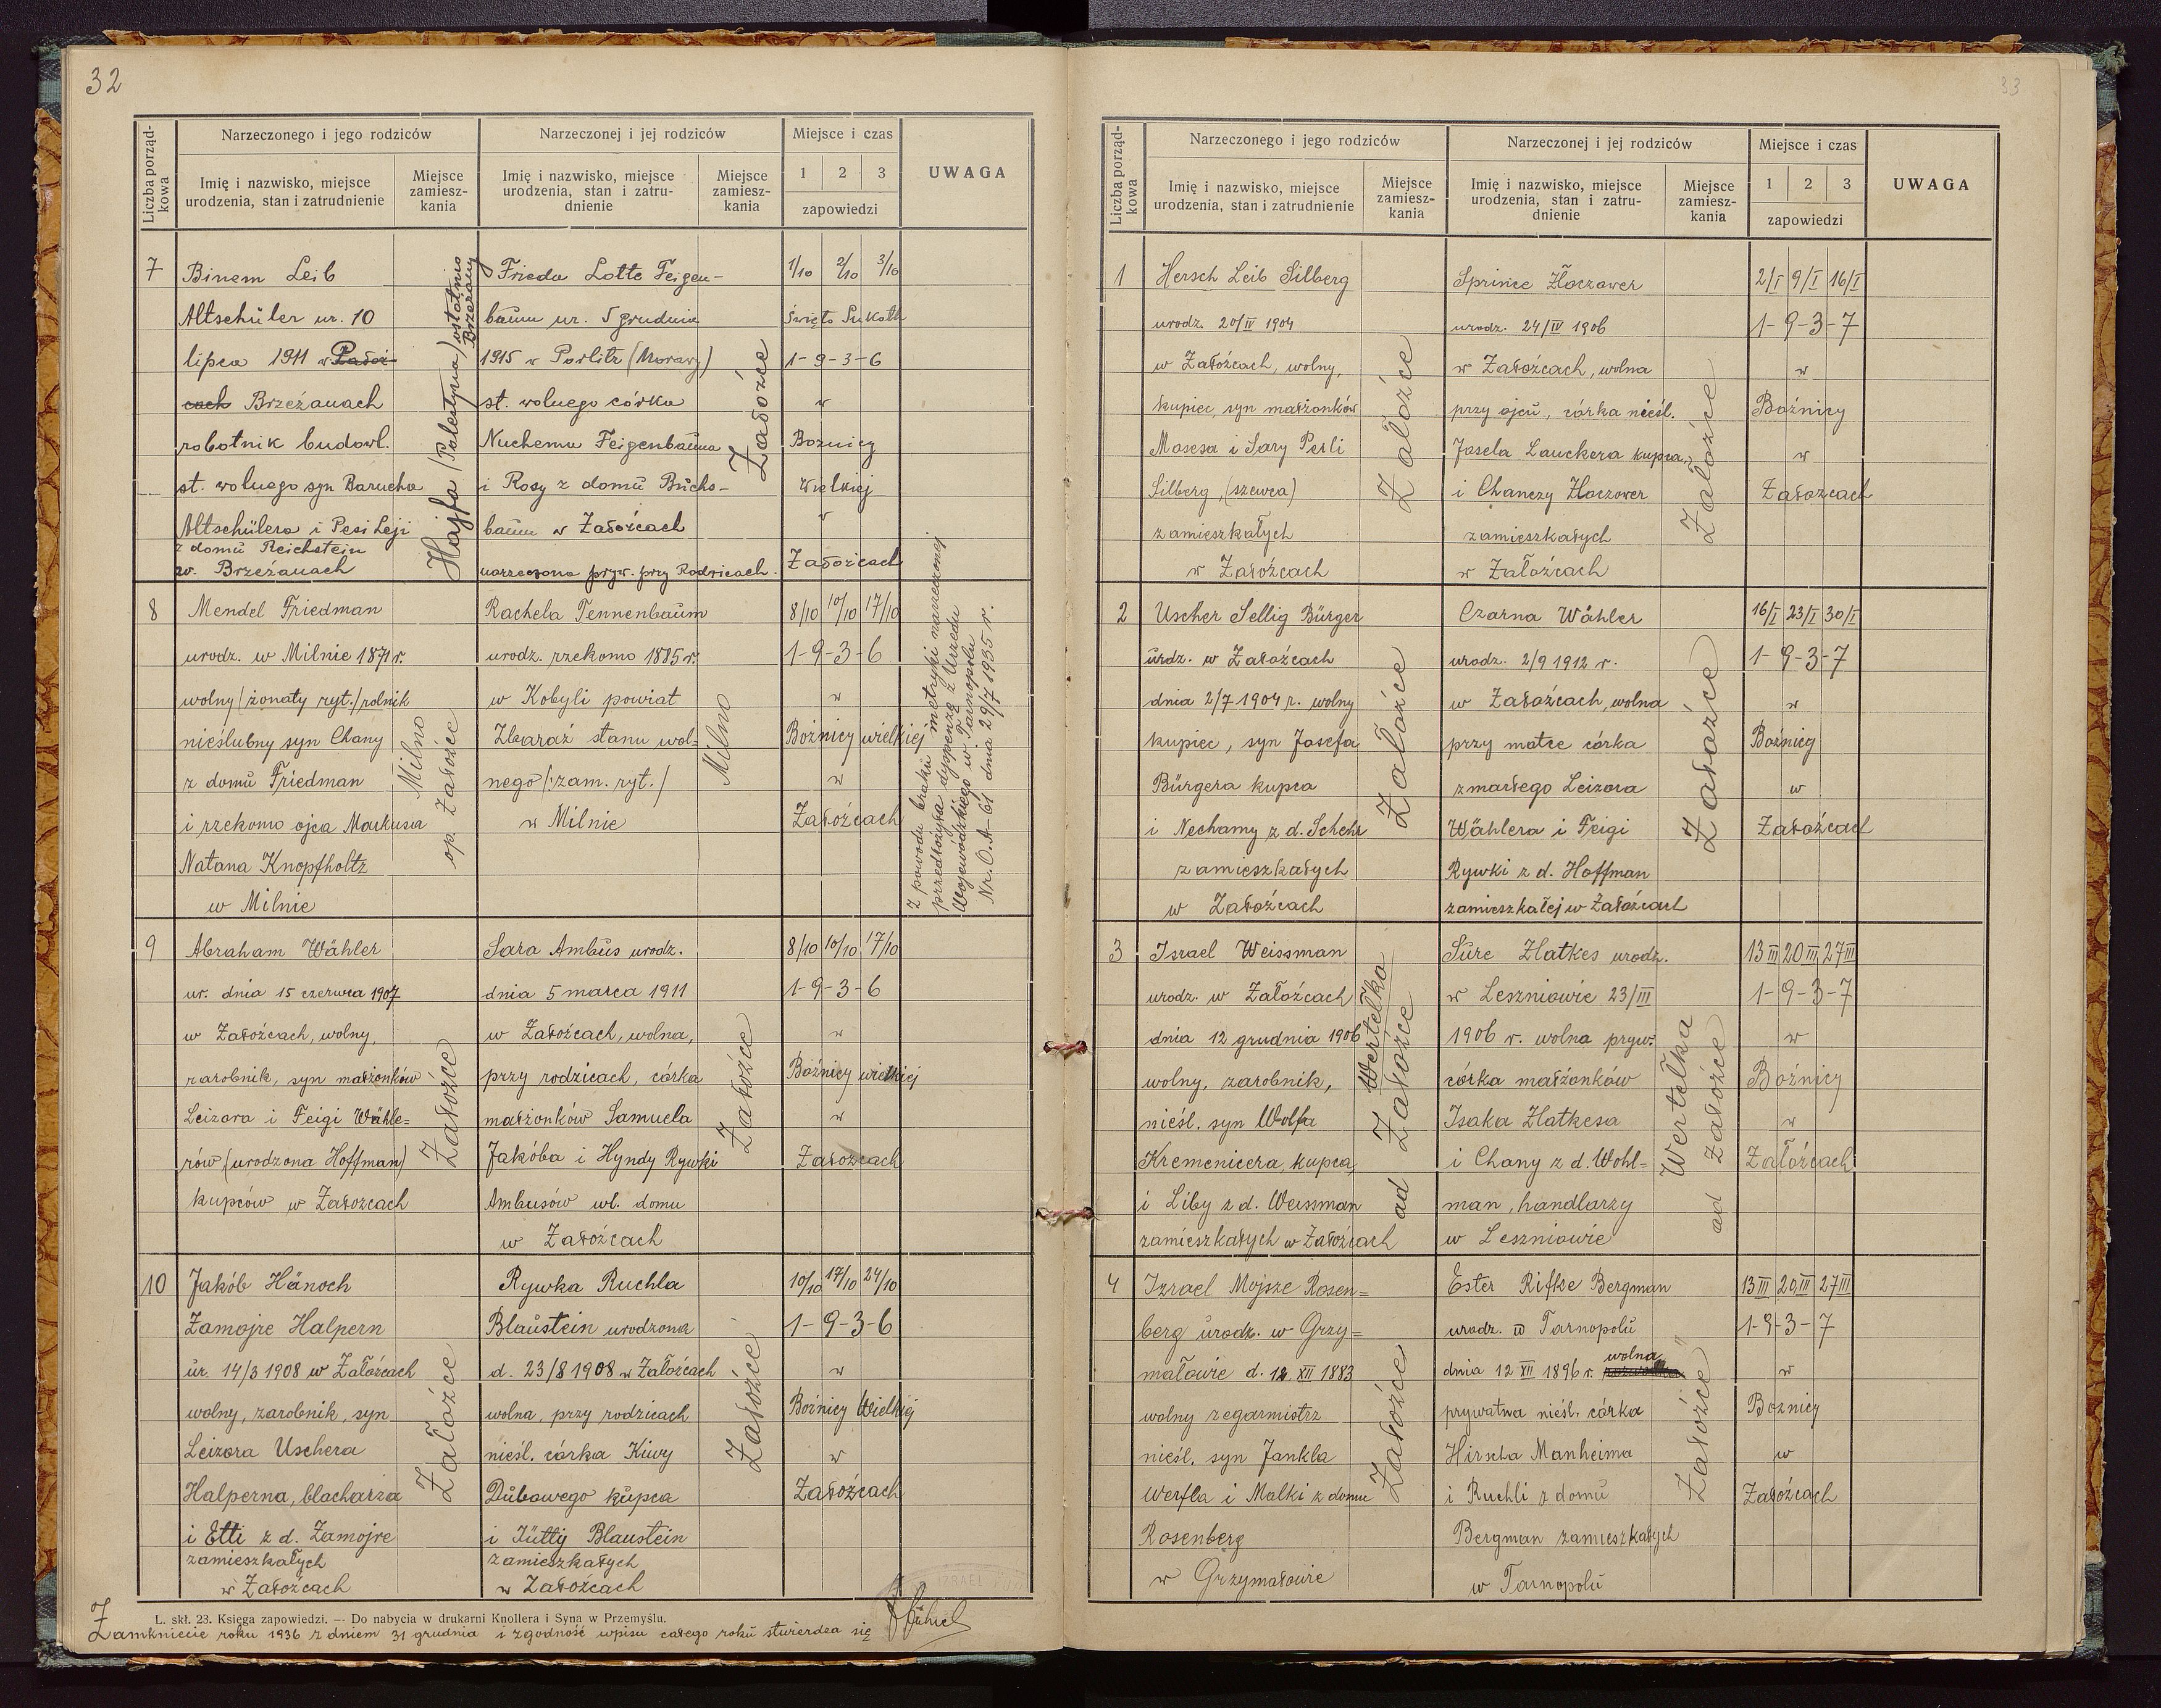 32
Liczba porządkowa
Narzeczonego i jego rodziców
Narzeczonej i jej rodziców
Miejsce i czas
UWAGA
Imię i nazwisko, miejsce
urodzenia, stan i zatrudnienie
Miejsce
zamiesz-
kania
Imię i nazwisko, miejsce
urodzenia, stan i zatru-
dnienie
Miejsce
zamiesz-
kania
1 2 3
zapowiedzi
7
Binem Leib
Altschüler ur. 10
lipca 1911 w Załoź-
cach Brzeżanach
robotnik budowl.
st. wolnego syn Barucha
Altschülera i Pesi Leji
z domu Reichstein
w. Brzeżanach
Hajfa (Palestyna) ostatnio
Brzeżany
Frieda Lotte Feigen-
baum ur. 5 grudnia
1915 w Porlitz (Morawy)
st. wolnego córka
Nuchema Feigenbauma
i Rosy z domu Buchs-
baum w Załoźcach
narzeczona pryw. przy Rodzicach.
Załoźce
1/10 2/10 3/10
święto Sukoth
1-9-3-6
w
Bożnicy
Wielkiej
w
Załoźcach
8
Mendel Friedman
urodz. w Milnie 1871 r.
wolny (żonaty ryt.) rolnik
nieślubny syn Chany
z domu Friedman
i rzekomo ojca Markusa
Natana Knopfholtz
w Milnie
Milno
op. Załoźce
Rachela Tennenbaum
urodz. rzekomo 1885 r.
w Kobyli powiat
Zbaraż stanu wol-
nego (:zam. ryt./
w Milnie
Milno
8/10 10/10 17/10
1-9-3-6
w
Bożnicy wielkiej
w
Załoźcach
Z powodu braku metryki narzeczonej
przedłożyła dyspenzę z Urzędu
Wojewódzkiego w Tarnopolu
Nr. O.A-61 dnia 29/7 1935 r.
9
Abraham Wähler
ur. dnia 15 czerwca 1907
w Załoźcach, wolny,
zarobnik, syn małżonków
Leizora i Feigi Wähle-
rów (urodzona Hoffman)
kupców w Załozcach
Załoźce
Sara Ambus urodz.
dnia 5 marca 1911
w Załoźcach, wolna,
przy rodzicach, córka
małżonków Samuela
Jakóba i Hyndy Rywki
Ambusów wł. domu
w Załoźcach
Załoźce
8/10 10/10 17/10
1-9-3-6
w
Bożnicy wielkiej
w
Załozcach
10
Jakób Hänoch
Zamojre Halpern
ur. 14/3 1908 w Załoźcach
wolny, zarobnik, syn
Leizora Uschera
Halperna, blacharza
i Etti z d. Zamojre
zamieszkałych
w Załoźcach
Załoźce
Rywka Ruchla
Blaustein urodzona
d. 23/8 1908 w Załoźcach
wolna, przy rodzicach
nieśl. córka Kiwy
Dubowego kupca
i Jütty Blaustein
zamieszkałych
w Załoźcach
Załoźce
10/10 17/10 24/10
1-9-3-6
w
Bożnicy Wielkiej
w
Załoźcach
L. skł. 23. Księga zapowiedzi. — Do nabycia w drukarni Knollera i Syna w Przemyślu.
Zamknięcie roku 1936 z dniem 31 grudnia i zgodność wpisu całego roku stwierdza się
33
Liczba porządkowa
Narzeczonego i jego rodziców
Narzeczonej i jej rodziców
Miejsce i czas
UWAGA
Imię i nazwisko, miejsce
urodzenia, stan i zatrudnienie
Miejsce
zamiesz-
kania
Imię i nazwisko, miejsce
urodzenia, stan i zatru-
dnienie
Miejsce
zamiesz-
kania
1 2 3
zapowiedzi
1
Hersch Leib Silberg
urodz. 20/IV 1904
w Załoźcach, wolny,
kupiec, syn małżonków
Mosesa i Sary Perli
Silberg, (szewca)
zamieszkałych
w Załoźcach
Załoźce
Sprince Złoczower
urodz. 24/IV 1906
w Załoźcach, wolna
przy ojcu, córka nieśl.
Josela Lauckera kupca,
i Chanczy Złoczower
zamieszkałych
w Załoźcach
Załoźce
2/I 9/I 16/I
1-9-3-7
w
Bożnicy
w
Załozcach
2
Uscher Sellig Bürger
urdz. w Załoźcach
dnia 2/7 1904 r. wolny
kupiec, syn Josefa
Bürgera kupca
i Nechamy z d. Schehr
zamieszkałych
w Załoźcach
Załoźce
Czarna Wähler
urodz. 2/9 1912 r.
w Załoźcach, wolna
przy matce córka
zmarłego Leizora
Wählera i Feigi
Rywki z d. Hoffman
zamieszkałej w Załoźcach
Załoźce
16/I 23/I 30/I
1-9-3-7
w
Bożnicy
w
Załoźcach
3
Israel Weissman
urodz. w Załoźcach
dnia 12 grudnia 1906
wolny, zarobnik,
nieśl. syn Wolfa
Kremenicera, kupca,
i Liby z d. Weissman
zamieszkałych w Załoźcach
Wertełka
ad Załoźce
Sure Zlatkes urodz.
w Leszniowie 23/III
1906 r. wolna pryw.
córka małżonków
Isaka Zlatkesa
i Chany z d. Wohl-
man, handlarzy
w Leszniowie
Wertełka
ad Załoźce
13 III 20 III 27 III
1-9-3-7
w
Bożnicy
w
Załoźcach
4
Izrael Mojsze Rosen-
berg urodz. w Grzy-
małowie d. 12 XII 1883
wolny zegarmistrz
nieśl. syn Jankla
Werfla i Malki z domu
Rosenberg
w Grzymałowie
Załoźce
Ester Rifke Bergman
urodz. w Tarnopolu
wolna
dnia 12 XII 1896 r.
prywatna nieśl. córka
Hirscha Manheima
i Ruchli z domu
Bergman zamieszkałych
w Tarnopolu
Załoźce
13 III 20 III 27 III
1-9-3-7
w
Bożnicy
w
Załoźcach